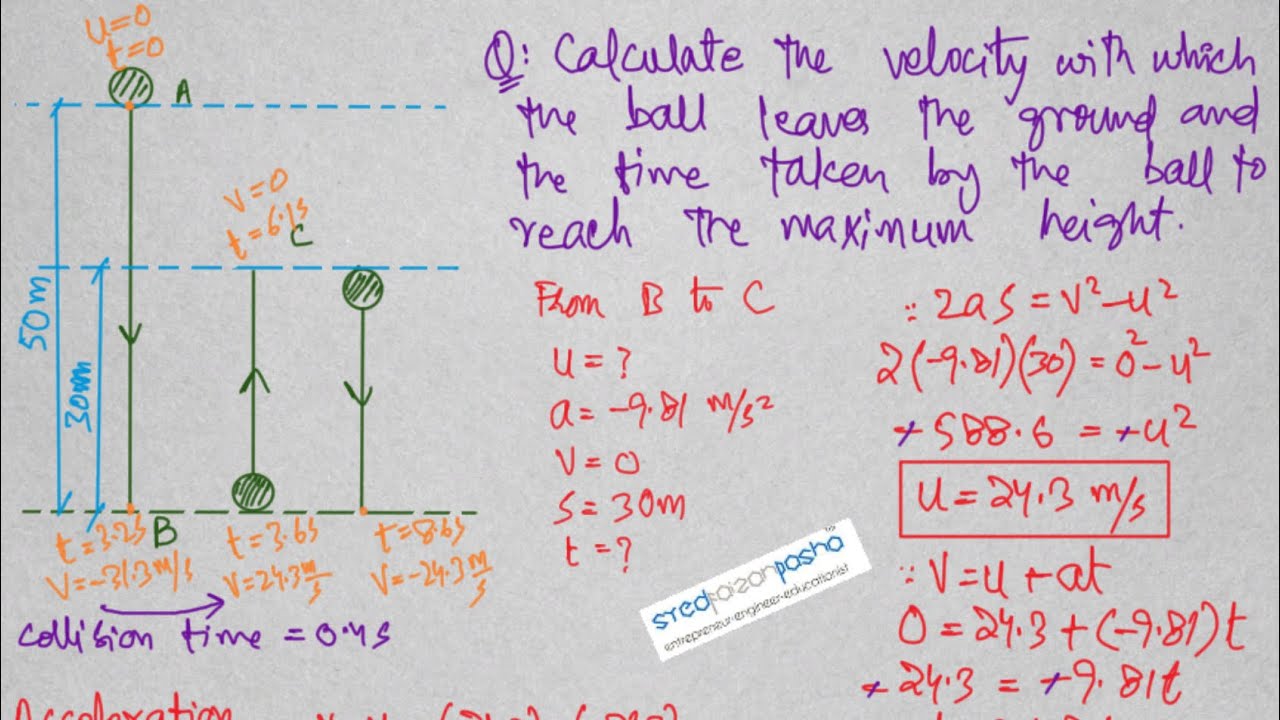 u=0
t=0
A
Q: Calculate the velocity with which
the ball leaves the ground and
the time taken by the ball to
reach the maximum height.
v=0
t=6.1s
C
50m
30m
From B to C
u = ?
a = -9.81 m/s²
v = 0
s = 30m
t = ?
∵ 2as = v²-u²
2(-9.81)(30) = 0²-u²
-588.6 = -u²
u = 24.3 m/s
∵ v = u + at
0 = 24.3 + (-9.81)t
-24.3 = -9.81t
B
t=3.2s
v=-31.3m/s
t=3.6s
v=24.3m/s
t=8.6s
v=-24.3m/s
Collision time = 0.4s
syedfaizanpasha
entrepreneur·engineer·educationist
Acceleration